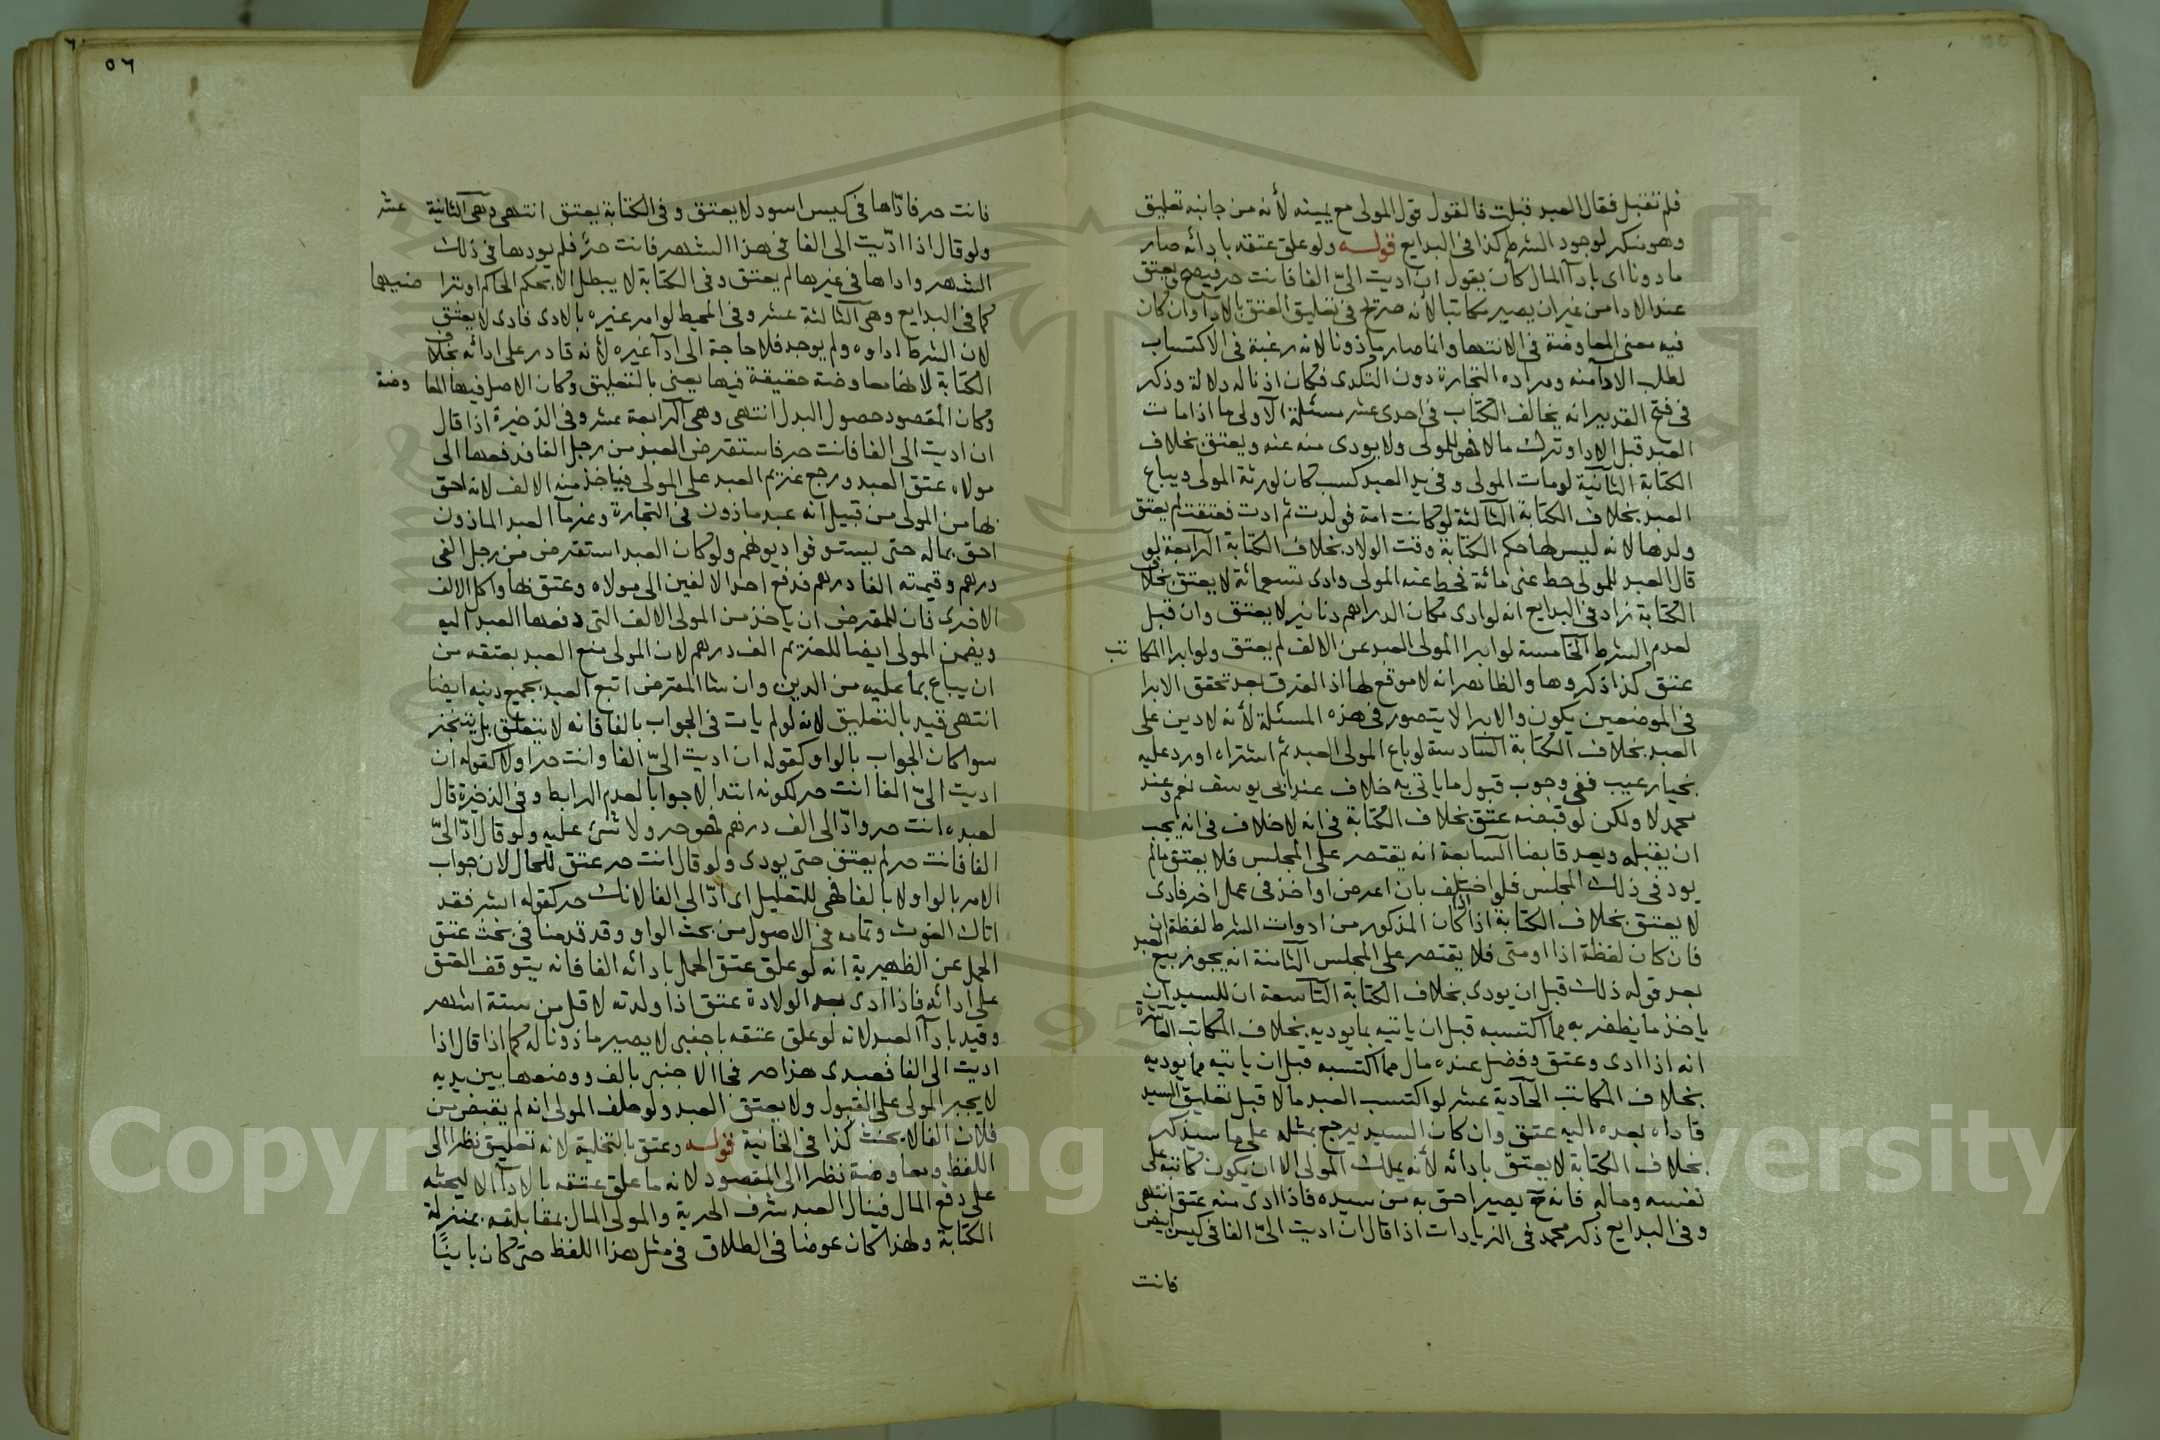 فلم تقبل فقال العبد قبلت فالقول قول المولى مع يمينه لأنه من جانبه تعليق
وهو منكر لوجود الشرط كذا في البدايع قوله ولو علق عتقه بادائه صار
ماذونا اى بادآ المال كأن يقول ان اديت الىّ الفا فانت حر فيصح ويعتق
عند الادا من غير ان يصير مكاتبا لأنه صريح في تعليق العتق بالادا وان كان
فيه معنى المعاوضة في الانتها وانما صار ماذونا لانه رغبة في الاكتساب
لطلب الادآ منه ومراده التجارة دون التكدى فكان اذنا له دلالة وذكر
في فتح القدير انه يخالف الكتاب في احدى عشر مسئلة الاولى ما اذا مات
العبد قبل الادا وترك مالا فهو للمولى ولا يودى منه عنه ويعتق بخلاف
الكتابة الثانية لو مات المولى وفي يد العبد كسب كان لورثة المولى ويباع
العبد بخلاف الكتابة الثالثة لو كانت امة فولدت ثم ادت فعتقت لم يعتق
ولدها لانه ليس لها حكم الكتابة وقت الولاد بخلاف الكتابة الرابعة لو
قال العبد للمولى حط عنى مائة فحط عنه المولى وادى تسعمائة لا يعتق بخلاف
الكتابة زاد في البدايع انه لو ادى مكان الدراهم دنانير لا يعتق وان قبل
لعدم الشرط الخامسة لو ابرا المولى العبد عن الالف لم يعتق ولو ابرا المكاتب
عتق كذا ذكروها والظاهر انه لا موقع لها اذ الفرق بعد تحقق الابرا
في الموضعين يكون والابرا لا يتصور في هذه المسئلة لأنه لا دين على
العبد بخلاف الكتابة السادسة لو باع المولى العبد ثم اشتراه او رد عليه
بخيار عيب ففي وجوب قبول ما ياتى به خلاف عند ابى يوسف نعم وعند
محمد لا ولكن لو قبضه عتق بخلاف الكتابة في انه لا خلاف في انه يجب
ان يقبله ويعد قابضا السابعة انه يقتصر على المجلس فلا يعتق مالم
يود في ذلك المجلس فلو اختلف بان اعرض او اخذ في عمل اخر فادى
لا يعتق بخلاف الكتابة اذا كان المذكور من ادوات الشرط لفظة ان
فان كان لفظة اذا او متى فلا يقتصر على المجلس الثامنة انه يجوز بيع العبد
بعد قوله ذلك قبل ان يودى بخلاف الكتابة التاسعة ان للسيد ان
ياخذ ما يظفر به مما اكتسبه قبل ان ياتيه بما يوديه بخلاف المكاتب العاشرة
انه اذا ادى وعتق وفضل عنده مال مما اكتسبه قبل ان ياتيه مما يوديه
بخلاف المكاتب الحادية عشر لو اكتسب العبد مالا قبل تعليق السيد
فاداه بعده اليه عتق وان كان السيد يرجع بمثله على ما سيذكر
بخلاف الكتابة لا يعتق بادائه لأنه يملك المولى الا ان يكون كاتبه على
نفسه وماله فانه ح يصير احق به من سيده فاذا ادى منه عتق انتهى
وفي البدايع ذكر محمد في الزيادات اذا قال ان اديت الىّ الفا في كيس ابيض
فانت
٥٦
فانت حر فادّاها في كيس اسود لا يعتق وفي الكتابة يعتق انتهى وهى الثانية عشر
ولو قال اذا ادّيت الى الفا في هذا الشهر فانت حرّ فلم يودها في ذلك
الشهر واداها في غيرها لم يعتق وفي الكتابة لا يبطل الا بحكم الحاكم او تراضيهما
كما في البدايع وهى الثالثة عشر وفي المحيط لو امر غيره بالادى فادى لا يعتق
لان الشرط اداوه ولم يوجد فلا حاجة الى ادآ غيره لأنه قادر على ادائه بخلاف
الكتابة لانها معاوضة حقيقة فيها يعنى بالتعليق وكان الاصل فيها المعاوضة
وكان المقصود حصول البدل انتهى وهى الرابعة عشر وفي الذخيرة اذا قال
ان اديت الى الفا فانت حر فاستقرض العبد من رجل الفا فدفعها الى
مولاه عتق العبد ورجع غريم العبد على المولى فياخذ منه الالف لانه احق
بها من المولى من قبيل انه عبد ماذون في التجارة وغرمآ العبد الماذون
احق بماله حتى يستوفوا ديونهم ولو كان العبد استقرض من رجل الفى
درهم وقيمته الفا درهم فدفع احد الالفين الى مولاه وعتق بها واكل الالف
الاخرى فان للمقرض ان ياخذ من المولى الالف التى دفعها العبد اليه
ويضمن المولى ايضا للغريم الف درهم لان المولى منع العبد بعتقه من
ان يباع بما عليه من الدين وان شا المقرض اتبع العبد بجميع دينه ايضا
انتهى قيد بالتعليق لانه لو لم يات في الجواب بالفا فانه لا يتعلق بل يتنجز
سوا كان الجواب بالواو كقوله ان اديت الىّ الفا وانت حر اولا كقوله ان
اديت الىّ الفا انت حر لكونه ابتدا لا جوابا لعدم الرابط وفي الذخيرة قال
لعبده انت حر وادّ الى الف درهم فهو حر ولا شئ عليه ولو قال ادّ الىّ
الفا فانت حر لم يعتق حتى يودى ولو قال انت حر عتق للحال لان جواب
الامر بالواو لا بالفا فهى للتعليل اى ادّ الى الفا لانك حر كقوله ابشر فقد
اتاك الغوث وتمامه في الاصول من بحث الواو وقد قدمنا في بحث عتق
الحمل عن الظهيرية انه لو علق عتق الحمل بادائه الفا فانه يتوقف العتق
على ادائه فاذا ادى بعد الولادة عتق اذا ولدته لاقل من ستة اشهر
وقيد بادآ العبد لانه لو علق عتقه باجنبى لا يصير ماذونا له كما اذا قال اذا
اديت الى الفا فعبدى هذا حر فجا الاجنبى بالف ووضعها بين يديه
لا يجبر المولى على القبول ولا يعتق العبد ولو حلف المولى انه لم يقبض من
فلان الفا لا يحنث كذا في الخانية قوله وعتق بالتخلية لانه تعليق نظرا الى
اللفظ ومعاوضة نظرا الى المقصود لانه ما علق عتقه بالادآ الا ليحثه
على دفع المال فينال العبد شرف الحرية والمولى المال بمقابلته بمنزلة
الكتابة ولهذا كان عوضا في الطلاق في مثل هذا اللفظ حتى كان باينًا